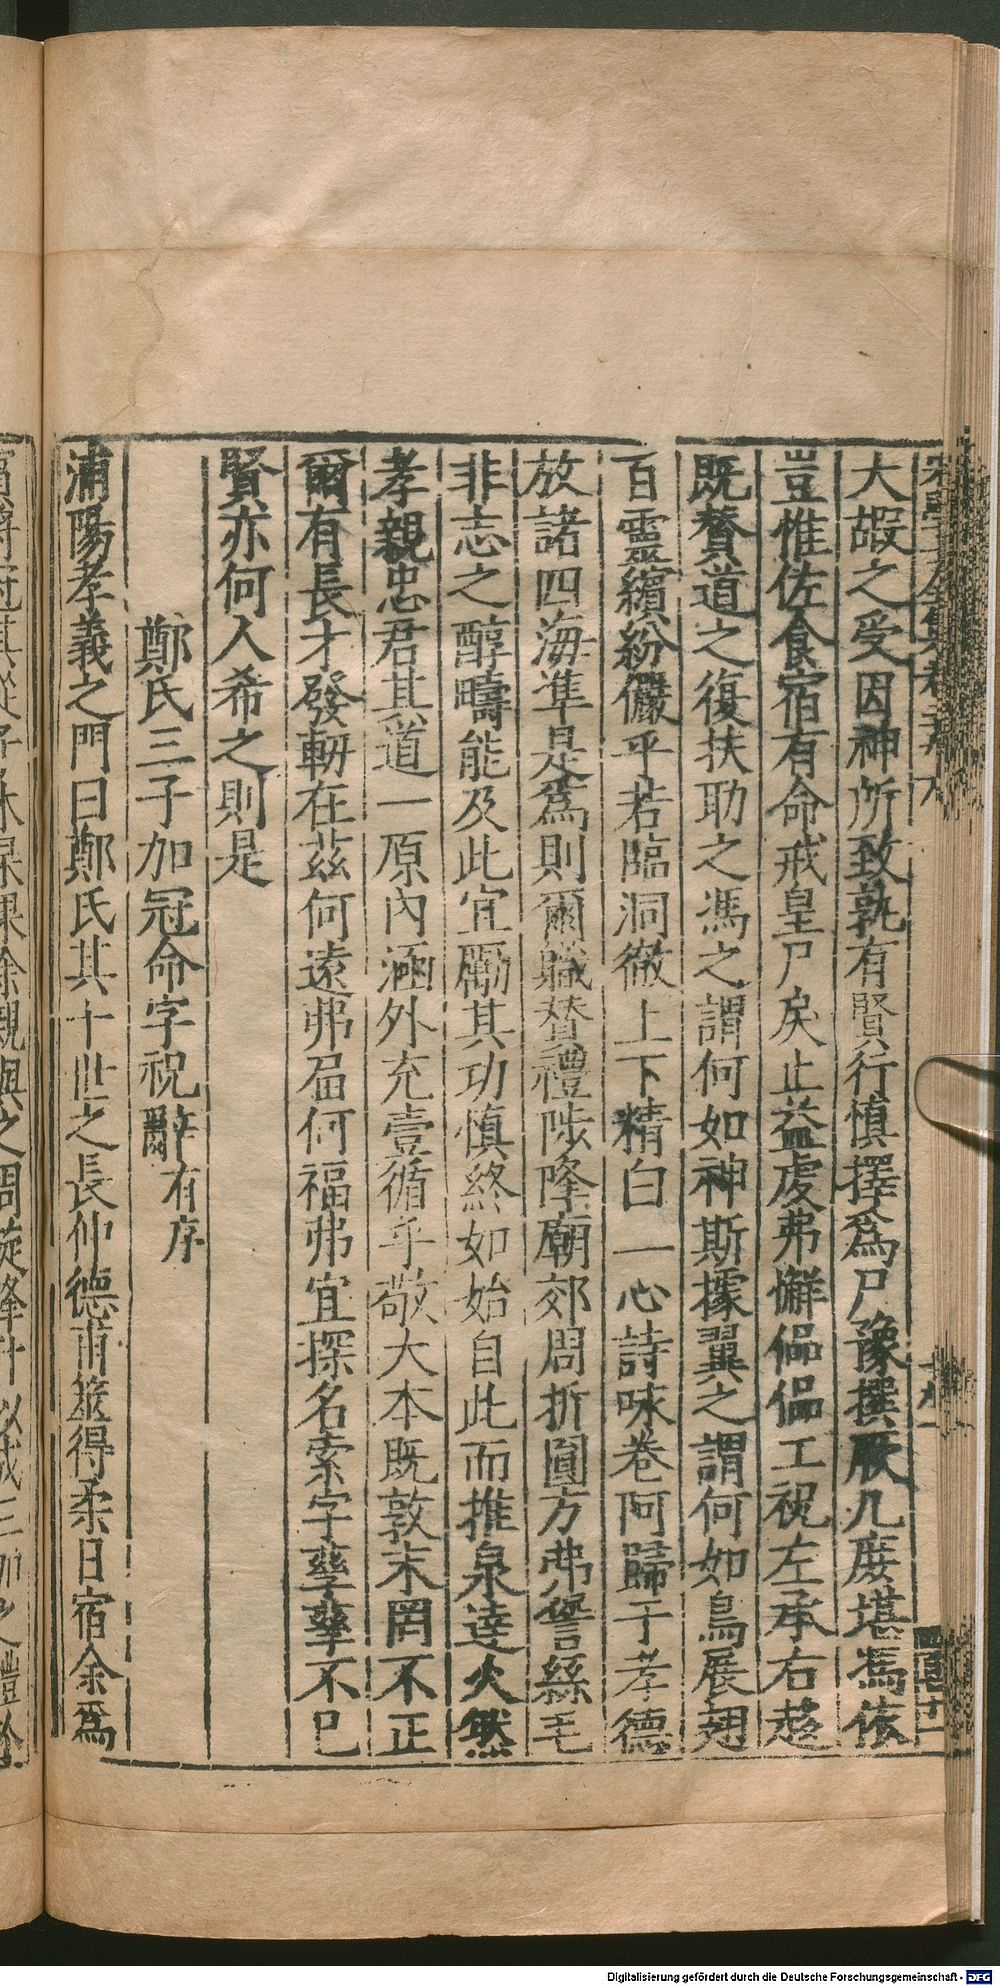 大嘏之受因神所致孰有賢行慎擇爲尸豫撰厥几庋堪馮依
豈惟佐食宿有命戒皇尸矦止益虔弗懈偘偘工祝左承右趍
既贊道之復扶助之馮之謂何如神斯據翼之謂何如鳥展翅
百靈繽紛儼乎若臨洞徹上下精白一心詩咏卷阿歸于孝德
放諸四海準是爲則爾職贊禮陟降廟郊周折圓方弗諐絲毛
非志之醇疇能及此宜勵其功慎終如始自此而推泉達火然
孝親忠君其道一原內涵外充壹循乎敬大本既敦末罔不正
爾有長才發軔在茲何遠弗屆何福弗宜探名索字孳孳不已
賢亦何人希之則是
鄭氏三子加冠命字祝辭有序
浦陽孝義之門曰鄭氏其十世之長仲德甫筮得柔日宿余爲
Digitalisierung gefördert durch die Deutsche Forschungsgemeinschaft - DFG